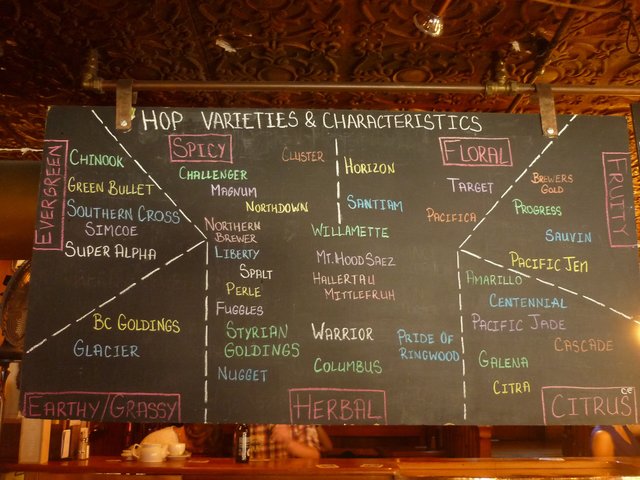 HOP VARIETIES & CHARACTERISTICS
EVERGREEN
CHINOOK
GREEN BULLET
SOUTHERN CROSS
SIMCOE
SUPER ALPHA
SPICY
CLUSTER
CHALLENGER
MAGNUM
NORTHDOWN
NORTHERN
BREWER
HORIZON
SANTIAM
FLORAL
TARGET
PACIFICA
FRUITY
BREWERS
GOLD
PROGRESS
SAUVIN
PACIFIC JEM
WILLAMETTE
LIBERTY
MT. HOOD SAEZ
SPALT
HALLERTAU
MITTLEFRUH
PERLE
FUGGLES
STYRIAN
GOLDINGS
WARRIOR
PRIDE OF
RINGWOOD
NUGGET
COLUMBUS
HERBAL
BC GOLDINGS
GLACIER
EARTHY/GRASSY
AMARILLO
CENTENNIAL
PACIFIC JADE
CASCADE
GALENA
CITRA
CITRUS